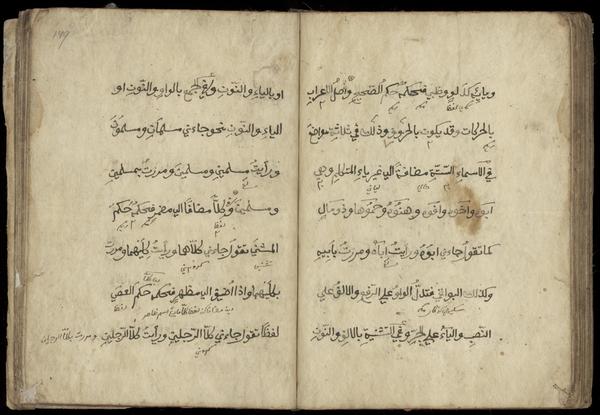 وياء كدلو وظبي فحكمه حكم الصحيح وأصل الاعراب
بالحركات وقد يكون بالحروف وذلك في ثلاثة مواضع
في الأسماء الستة مضافة الى غير ياء المتكلم وهي
ابوه واخوه وفوه وهنوه وحموها وذو مال
كما تقول جاءني ابوه ورأيت اباه ومررت بأبيه
وكذلك البواقي فتدل الواو على الرفع والالف على
النصب والياء على الجر وفي التثنية بالالف والنون
149
او بالياء والنون وفي الجمع بالواو والنون او
الياء والنون نحو جاءني مسلمان ومسلمون
ورأيت مسلمين ومسلمين ومررت بمسلمين
ومسلمين وكلا مضافا اليه مضمر فحكمه حكم
المثنى تقول جاءني كلاهما ورأيت كليهما ومررت
بكليهما واذا اضيف الى مظهر فحكمه حكم العصي
لفظا تقول جاءني كلا الرجلين ورأيت كلا الرجلين ومررت بكلا الرجلين